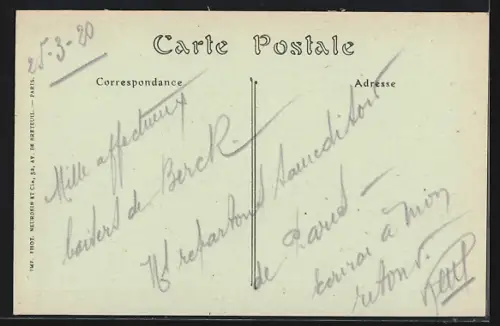 25-3-20
Carte Postale
Correspondance
Adresse
Mille affectueux
baisers de Berck.
repartons samedi soir
de Paris. —
écrirai à mon
retour.
IMP. PHOT. NEURDEIN ET Cie, 52, AV. DE BRETEUIL. — PARIS.